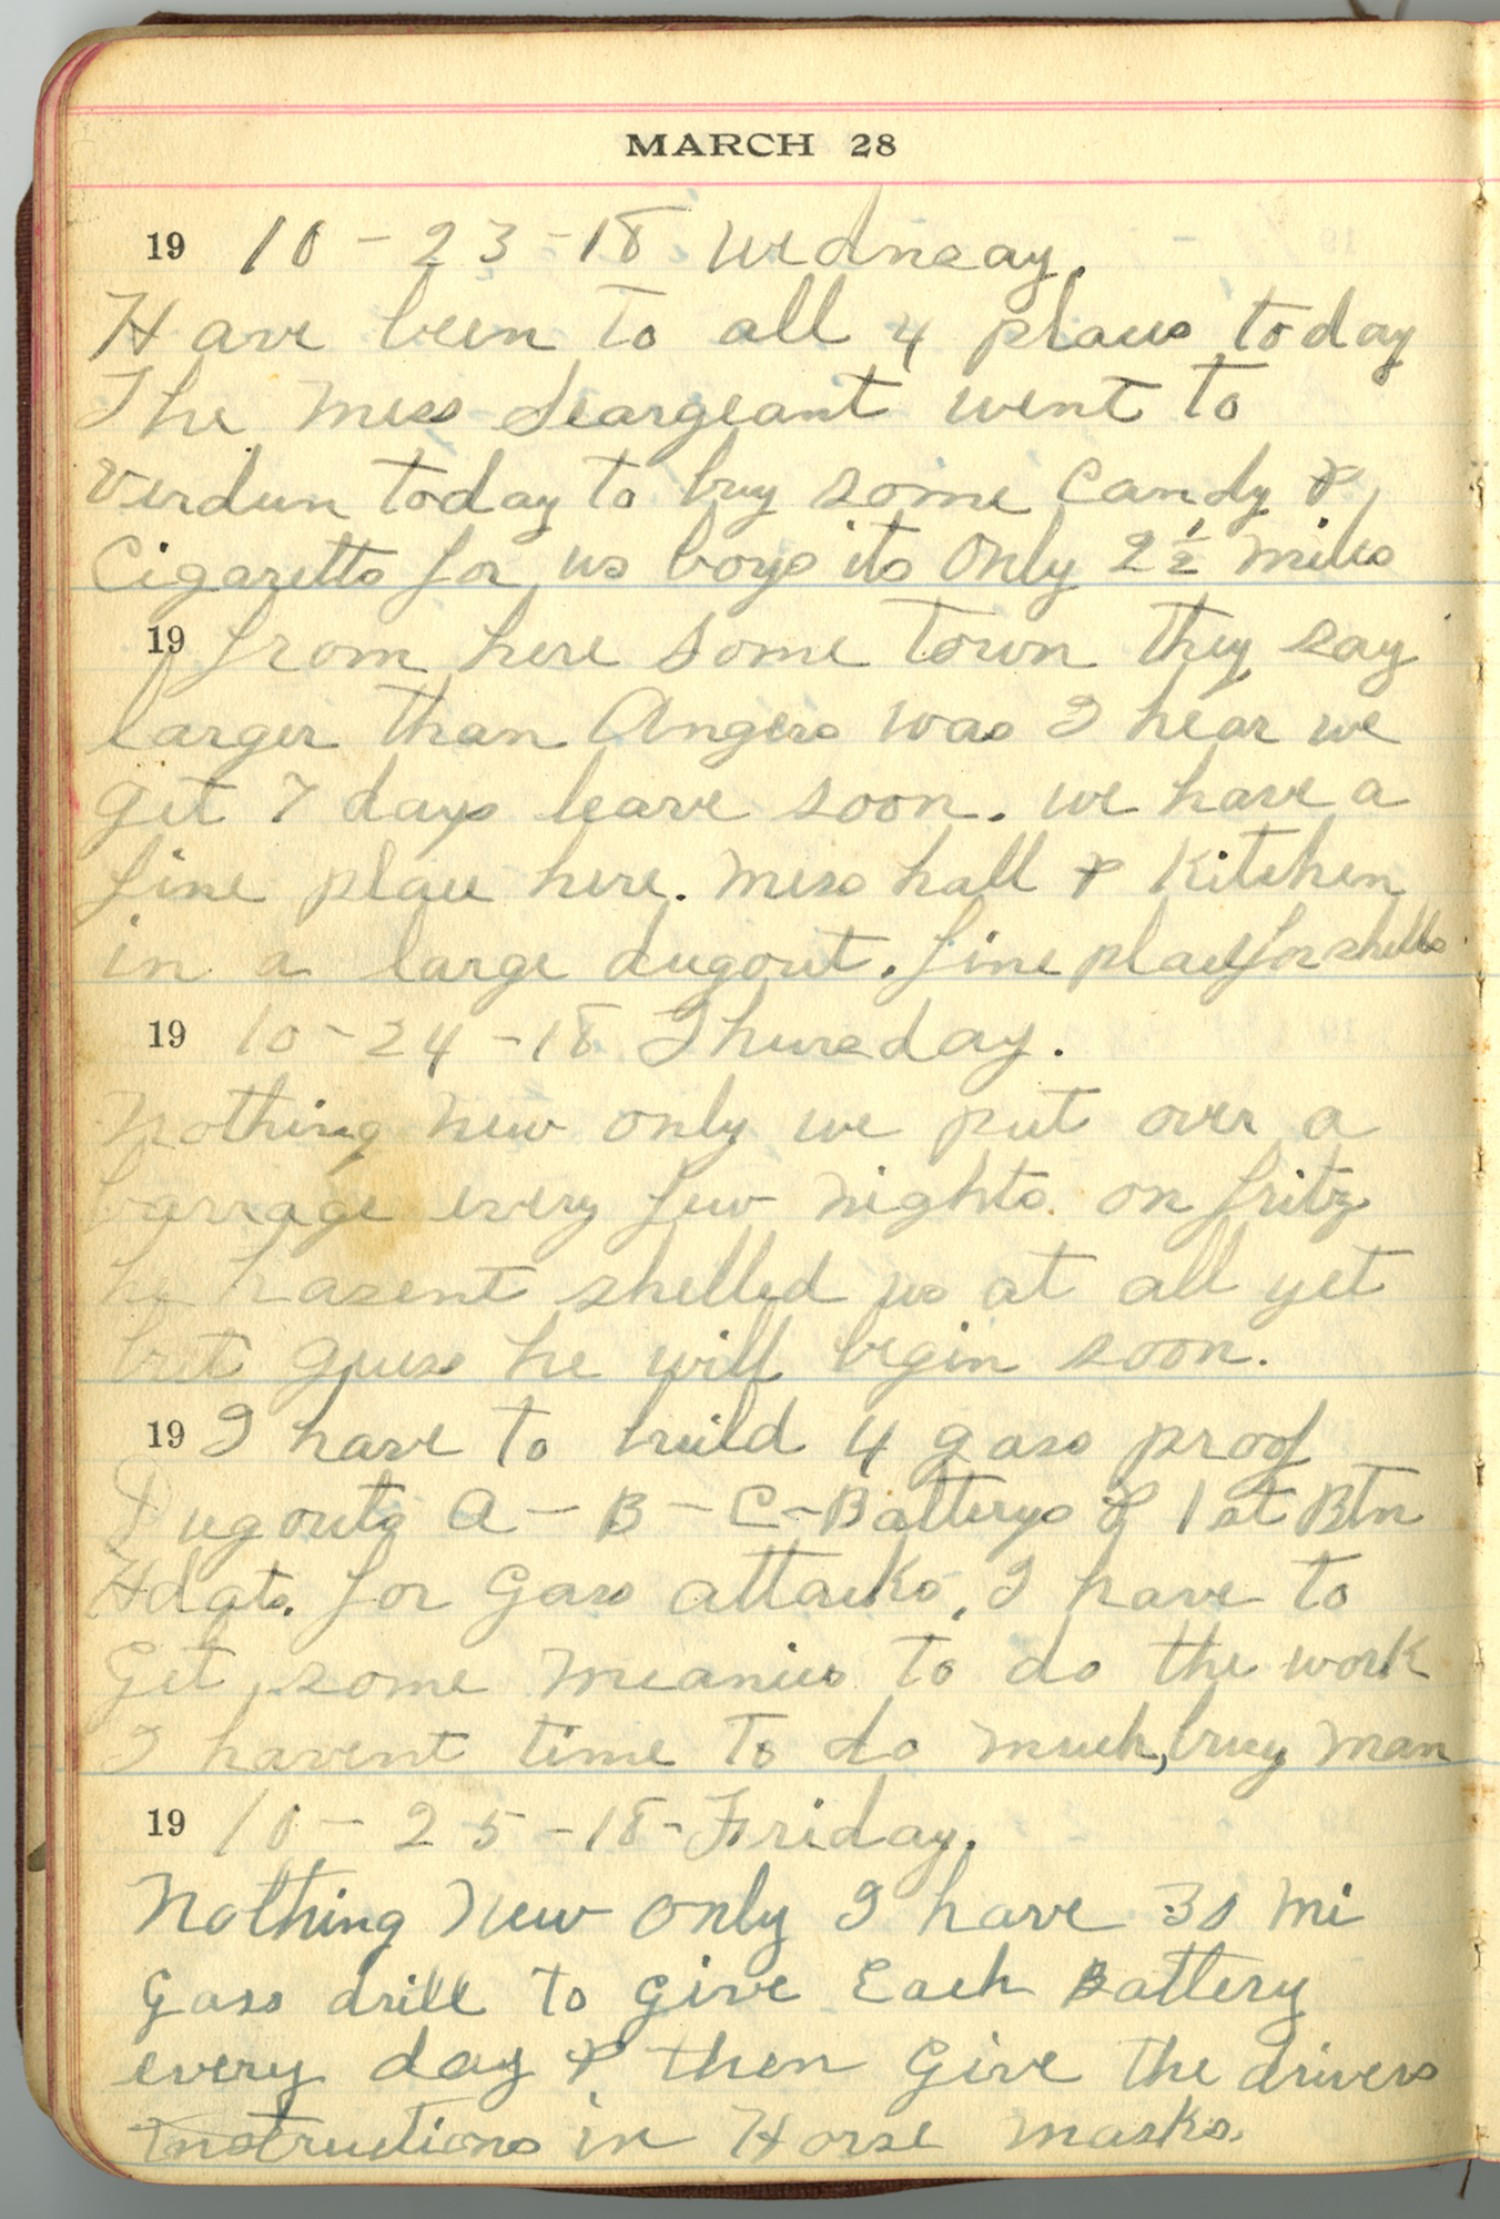 MARCH 28
19 10-23-18 Wednsay.
Have been to all 4 places today
The Mess Seargeant went to
Verdun today to buy some Candy &
Cigaretts for us boys its Only 2 1/2 miles
19 from here some town they say
larger than Angers was I hear we
get 7 days leave soon. we have a
fine place here. Mess hall & Kitchen
in a large dugout. fine place for shells
19 10-24-18 Thursday.
Nothing new only we put over a
barrage every few nights on fritz
he hasent shelled us at all yet
but guess he will begin soon.
19 I have to build 4 gass proof
Dugouts A-B-C-Batterys & 1st Btn
Hdqts. for Gass attacks. I have to
Get some to do the work
I havent time to do much, busy man
19 10-25-18-Friday.
Nothing New only I have 30 Mi
Gass drill to give Each Battery
every day & then Give the drivers
Instructions in Horse Masks.